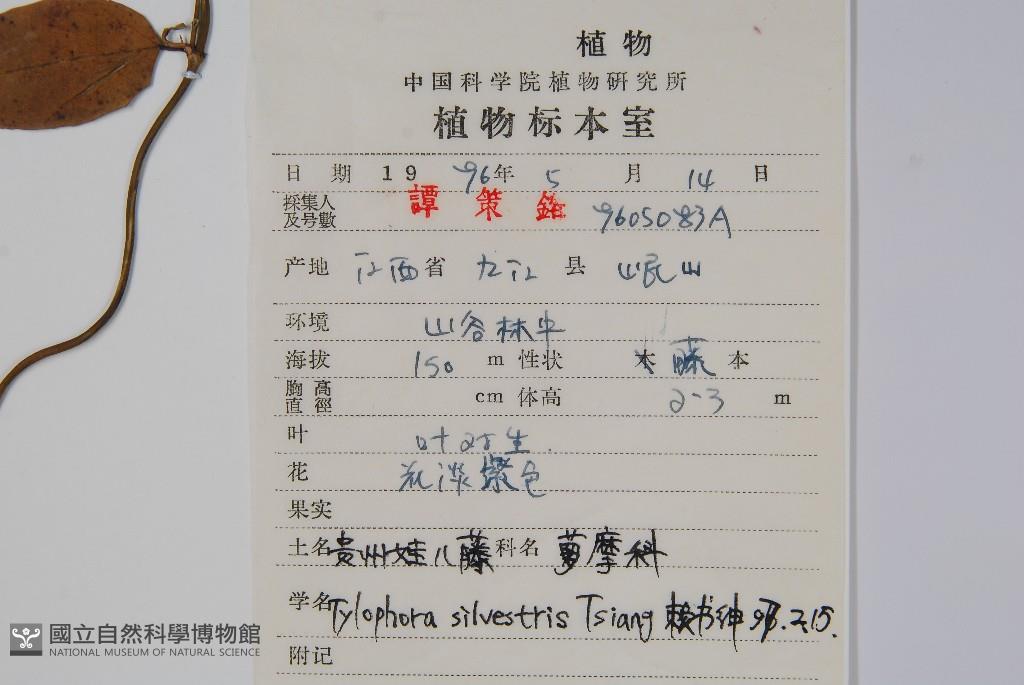 植物
中国科学院植物研究所
植物标本室
日 期 1 9 96 年 5 月 14 日
採集人及号數 譚策銘 9605083A
产地 江西 省 九江 县 岷山
环境 山谷林中
海拔 150 m 性状 藤本
胸高直徑 cm 体高 2-3 m
叶 叶对生.
花 花淡紫色
果实
土名 贵州娃儿藤 科名 萝摩科
学名 Tylophora silvestris Tsiang 赖书绅 97.2.15.
附记
國立自然科學博物館
NATIONAL MUSEUM OF NATURAL SCIENCE